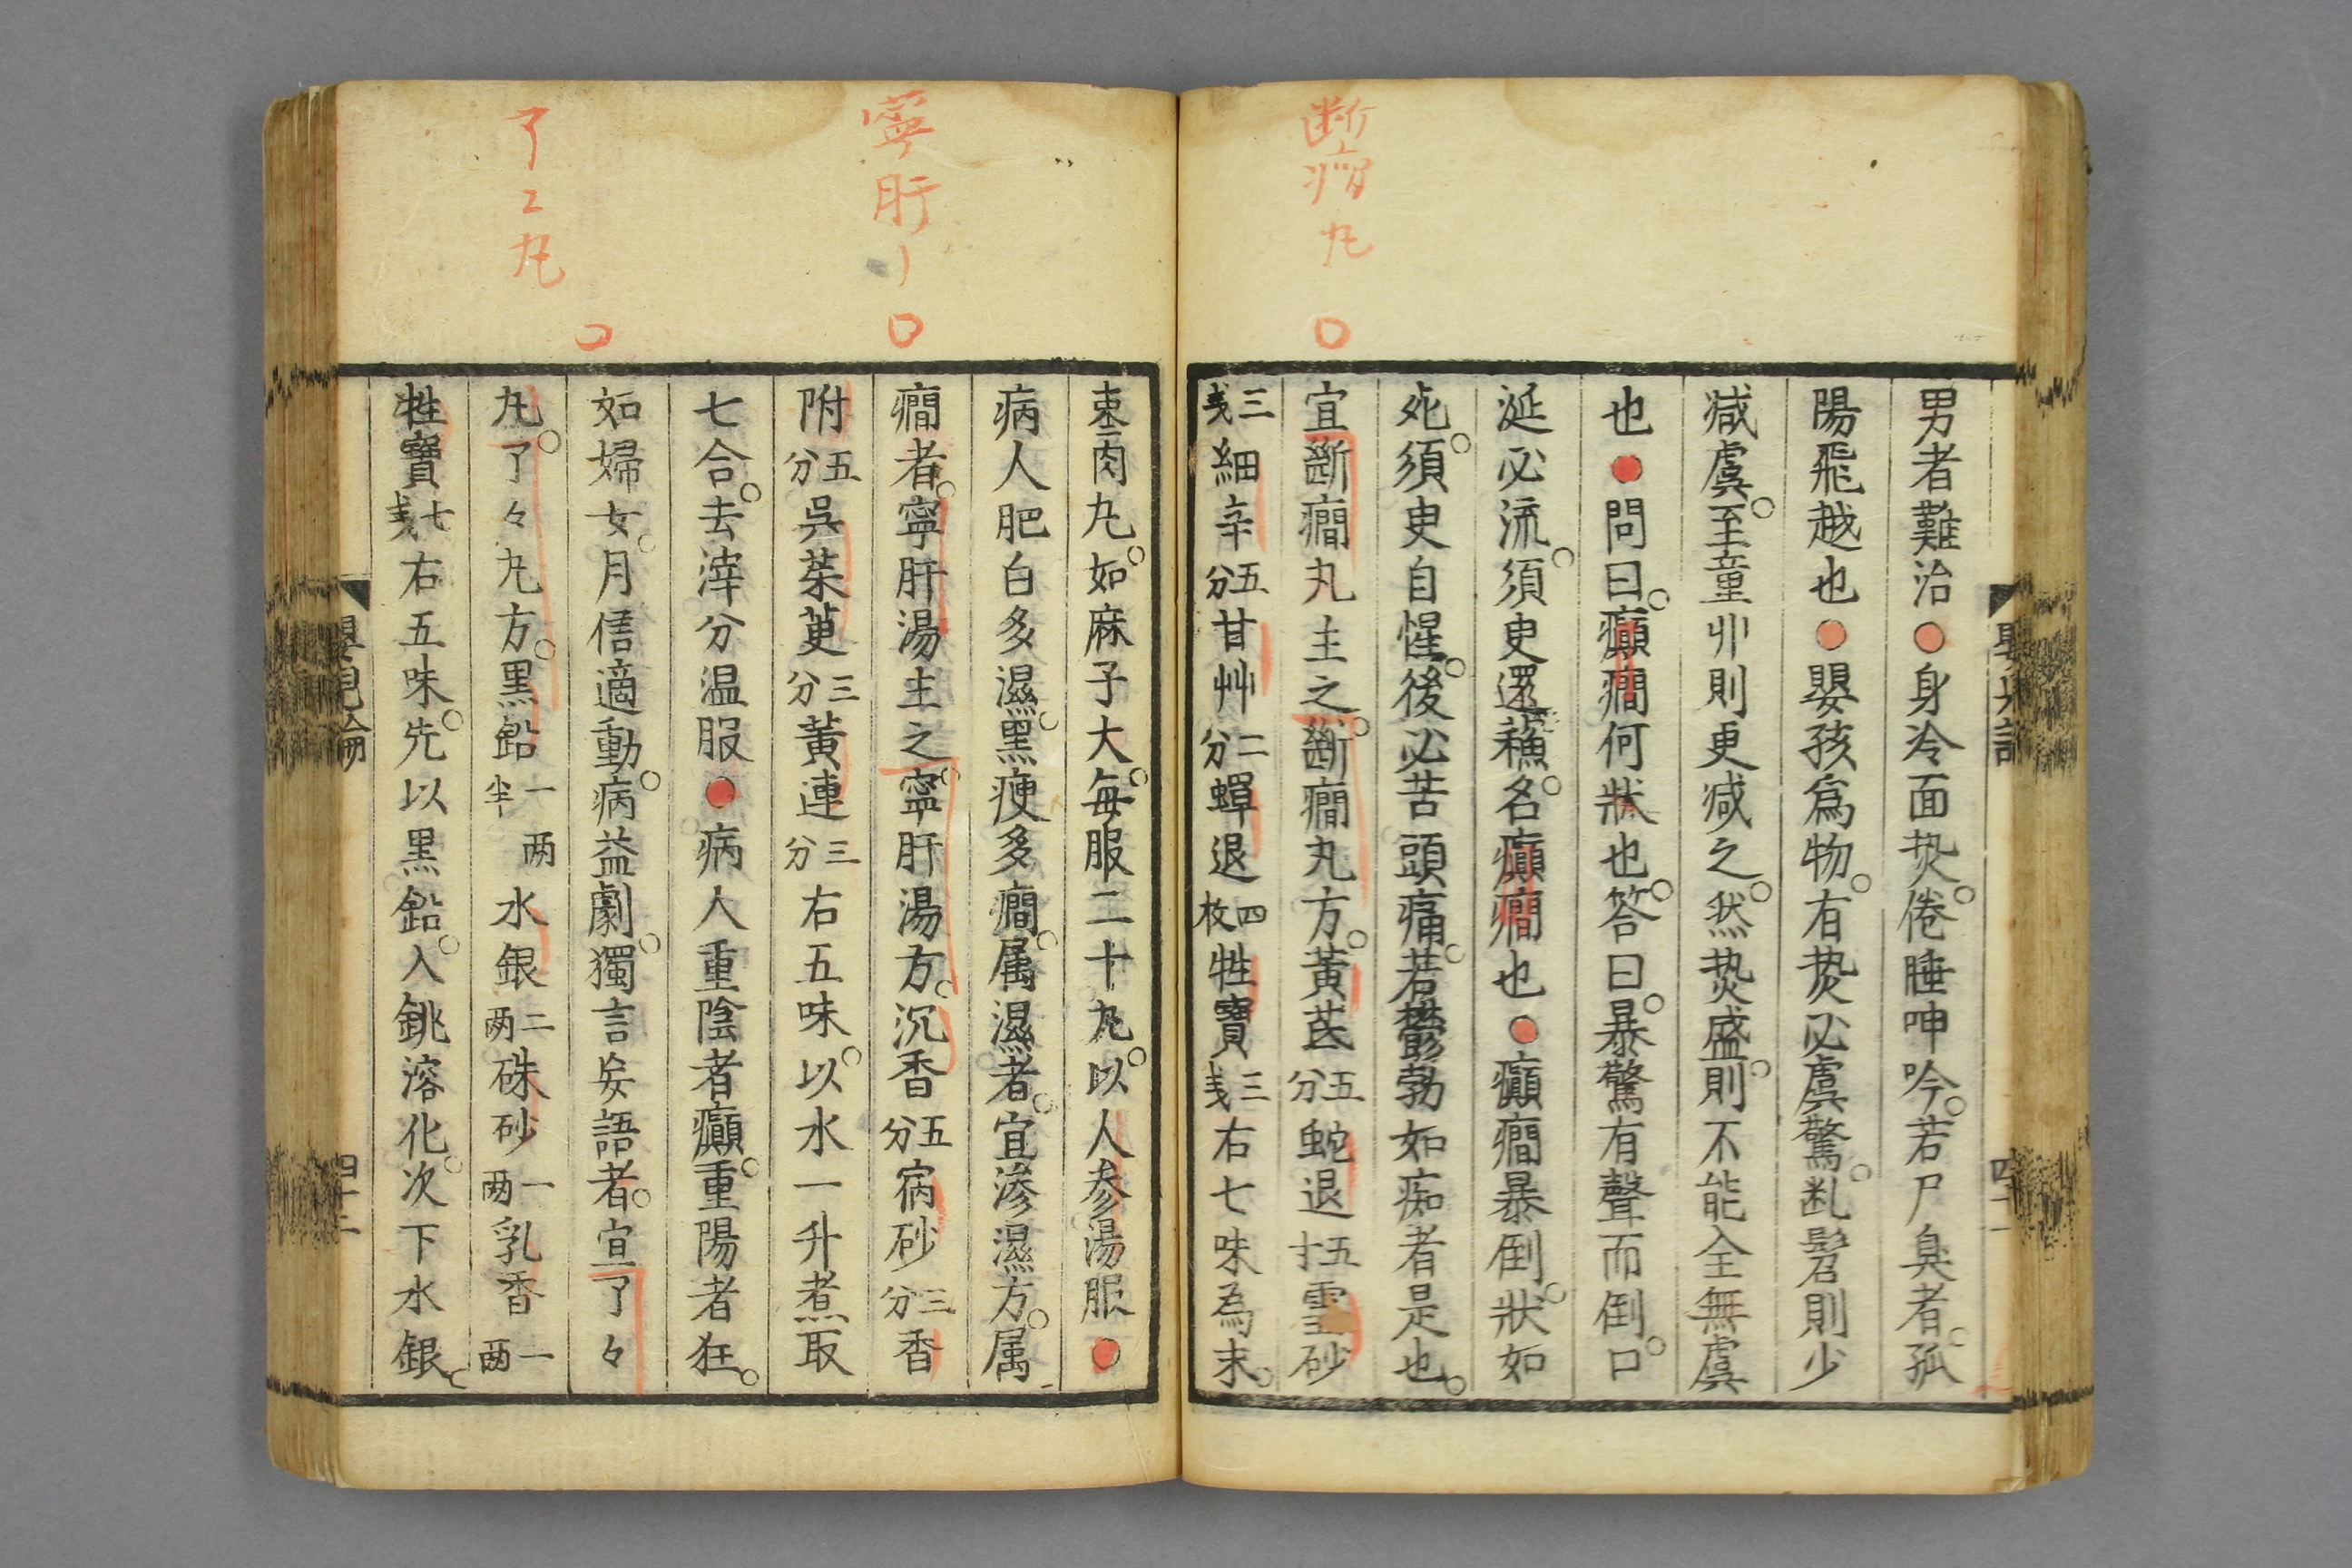 断癇丸
男者難治●身冷面𤍠。倦睡呻吟。若尸臭者。孤
陽飛越也●嬰孩爲物。有𤍠必虞驚。乱髫則少
减虞。至童丱則更减之。然𤍠盛則。不能全無虞
也●問曰。癲癇何狀也。答曰。暴驚有聲而倒。口
涎必流。須臾還穌。名癲癇也●癲癇暴倒。狀如
死。須臾自惺。後必苦頭痛。若鬱勃如痴者是也。
宜斷癇丸主之。斷癇丸方。黃芪五分蛇退五寸雪砂
三戔細辛五分甘艸二分蟬退四枚牲寶三戔右七味為末。
四十一
寧肝〳
了〻丸
棗肉丸。如麻子大。每服二十丸。以人参湯服●
病人肥白多濕。黑瘦多癇。属濕者。宜滲濕方。属
癇者。寧肝湯主之。寧肝湯方。沉香五分宿砂三分香
附五分吳茱萸三分黃連三分右五味。以水一升煮取
七合。去滓分温服●病人重陰者癲。重陽者狂。
如婦女。月信適動。病益劇。獨言妄語者。宜了々
丸。了々丸方。黑鉛一两半水銀二两硃砂一两乳香一两
牲寶七戔右五味。先以黑鉛。入銚溶化。次下水銀。
嬰兒論
四十二